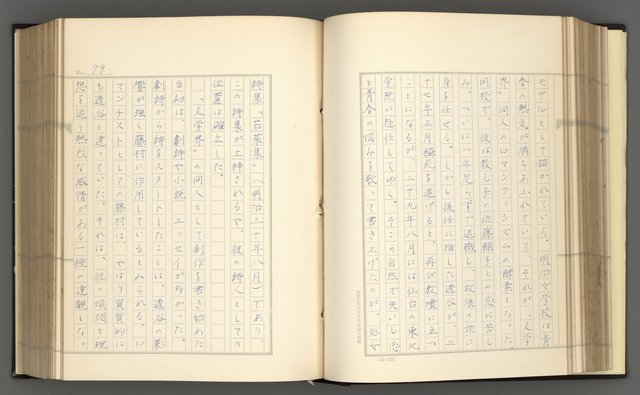 モデルとして描かれている。明治女学校は青
春の熱気が満ちあふれていて、それが「文学
界」同人のロマンチーシズムの酵素となった。
同校で、彼は教え子の佐藤輔子との恋に苦し
み、ついに一年足らずで退職し、放浪の旅に
身を任せる。しかし後任に推した透谷が、二
十七年五月縊死を遂げると、再び教壇に立つ
ことになるが、二十九年八月には仙台の東北
学院に赴任してゆく。そこの自然で失いし恋
と青春の悩みを歌って書き上げたのが、処女
79
詩集「若菜集」(明治三十年八月)であり、
この詩集が上梓されるや、彼の詩人としての
位置は確立した。
「文学界」の同人として創作を書き始めた
当初は、劇詩や小説、エッセイが多かった。
劇詩から詩をスタートしたことは、透谷の影
響が強く藤村に作用しているとみられる。ロ
マンチストとしての藤村は、やはり資質的に
も透谷と違っていた。それは、彼の煩悶と理
想を追う熱烈な感情がある一種の達観となっ